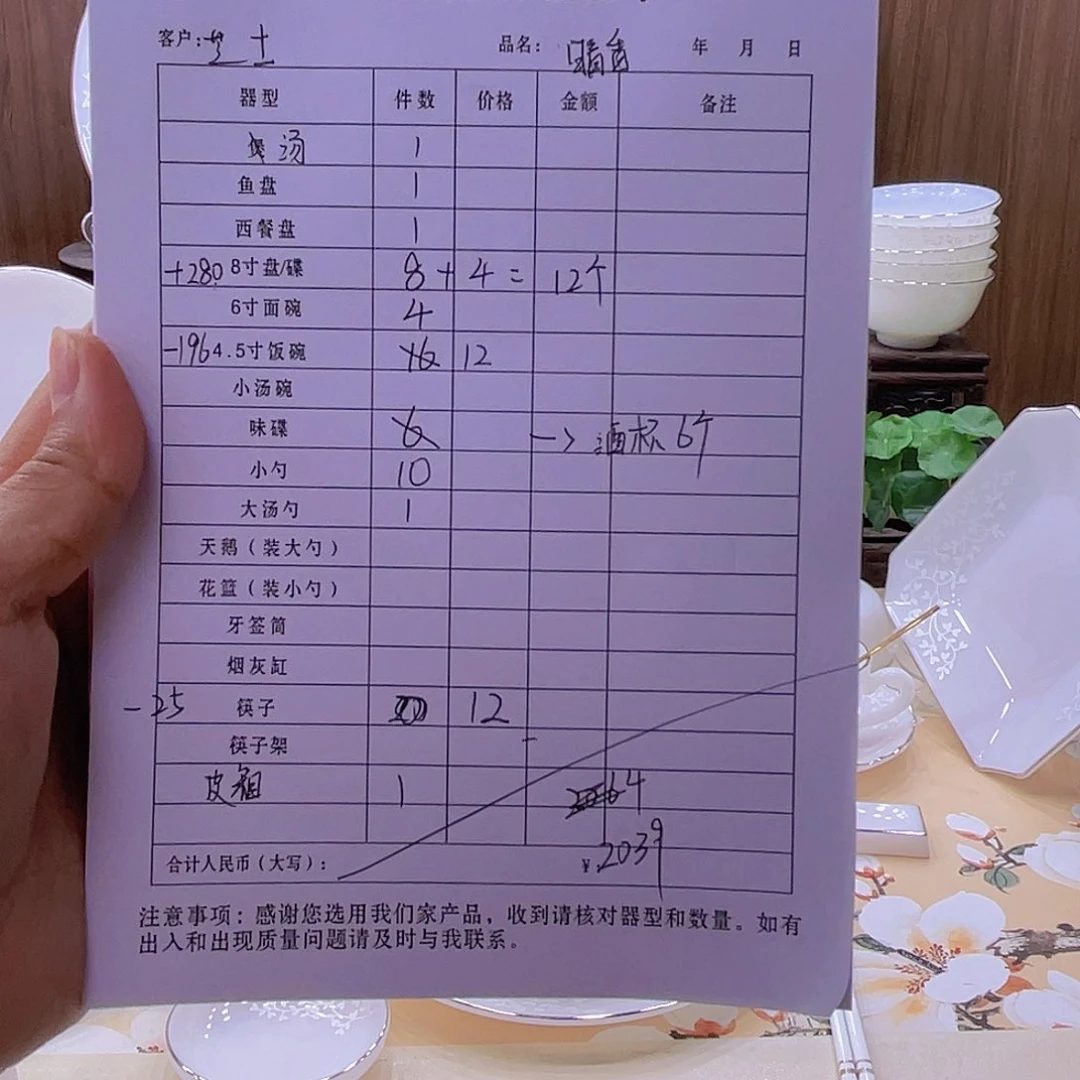 客户: 芝士 品名: 暗香 年 月 日
器型 件数 价格 金额 备注
煲汤 1
鱼盘 1
西餐盘 1
+280 8寸盘/碟 8+4=12个
6寸面碗 4
-196 4.5寸饭碗 16 12
小汤碗
味碟 6 -> 酒杯6个
小勺 10
大汤勺 1
天鹅（装大勺）
花篮（装小勺）
牙签筒
烟灰缸
-25 筷子 12
筷子架
皮箱 1
合计人民币（大写）： ¥2039
注意事项：感谢您选用我们家产品，收到请核对器型和数量。如有
出入和出现质量问题请及时与我联系。